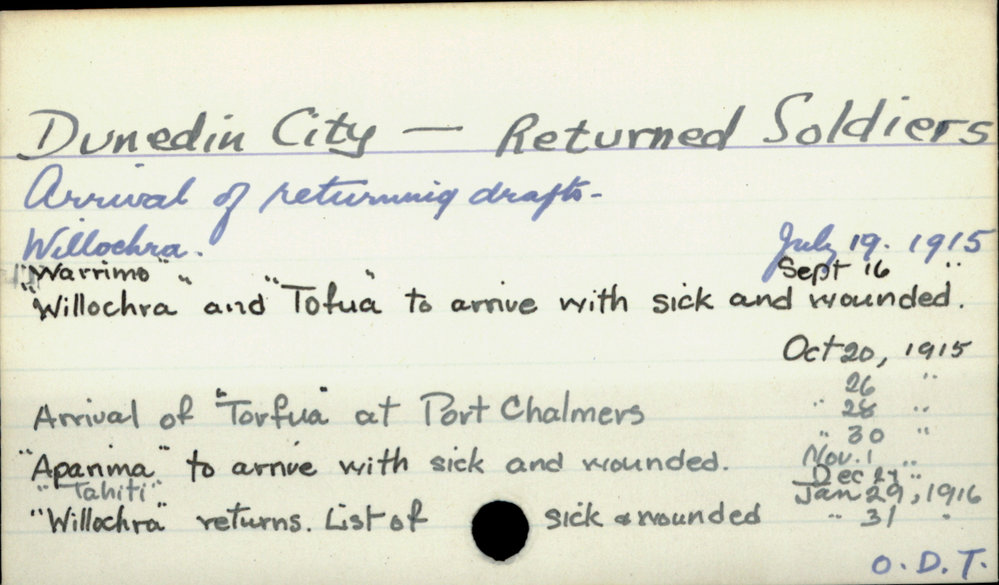 Dunedin City — Returned Soldiers
Arrival of returning drafts-
Willochra. July 19. 1915
"Warrimo" Sept 16 "
"Willochra" and "Tofua" to arrive with sick and wounded.
Oct 20, 1915
26 "
Arrival of "Torfua" at Port Chalmers " 28 "
" 30 "
"Aparima" to arrive with sick and wounded. Nov. 1 "
"Tahiti" Dec 24 "
Jan 29, 1916
"Willochra" returns. List of sick & wounded " 31 "
O.D.T.